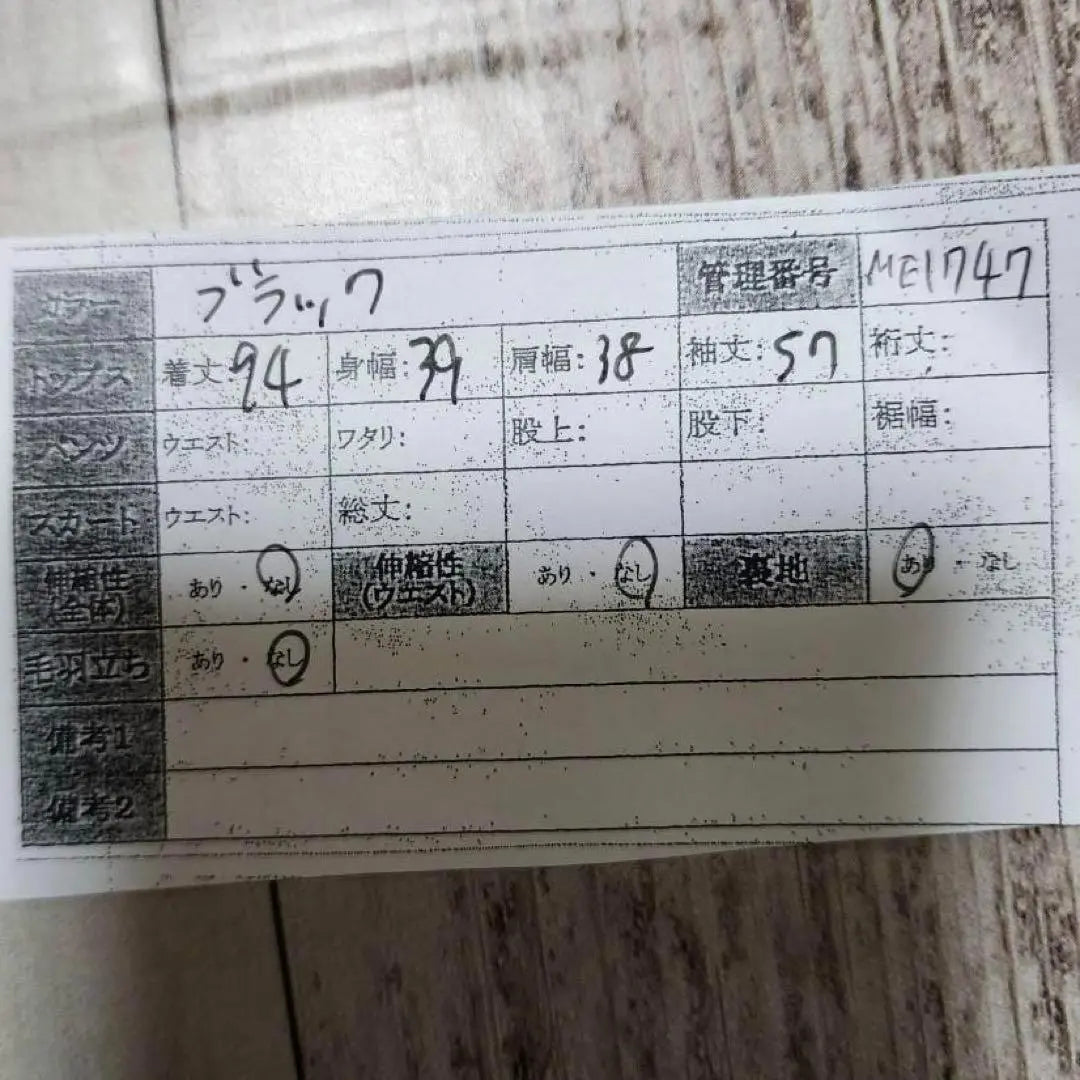 カラー ブラック 管理番号 ME1747
トップス 着丈:94 身幅:39 肩幅:38 袖丈:57 裄丈:
パンツ ウエスト: ワタリ: 股上: 股下: 裾幅:
スカート ウエスト: 総丈:
伸縮性(全体) あり・なし 伸縮性(ウエスト) あり・なし 裏地 あり・なし
毛羽立ち あり・なし
備考1
備考2